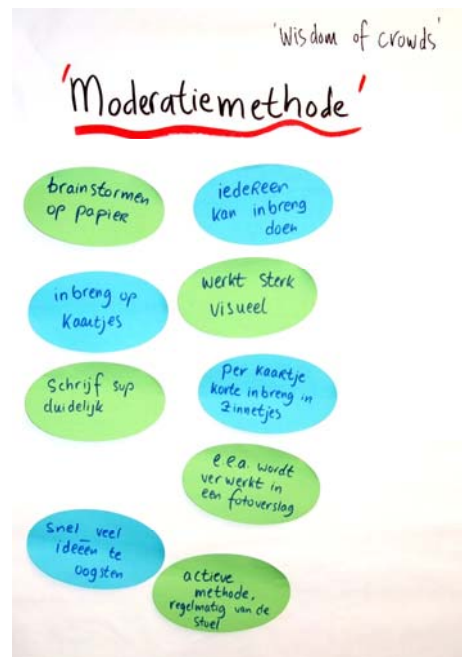 'Wisdom of crowds'
'Moderatiemethode'
brainstormen
op papier
iedereen
kan inbreng
doen
inbreng op
kaartjes
werkt sterk
visueel
Schrijf sup
duidelijk
per kaartje
korte inbreng in
zinnetjes
e.e.a. wordt
verwerkt in
een fotoverslag
snel veel
ideeën te
oogsten
actieve
methode,
regelmatig van de
stoel